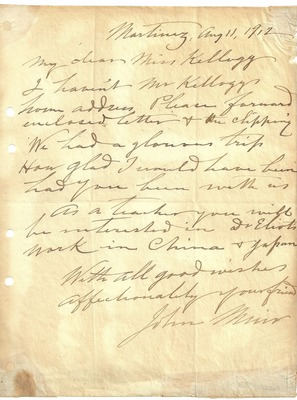 Martinez, Aug 11, 1912
My dear Miss Kellogg
I haven't Mr Kellogg's
home address. Please forward
enclosed letter & the clipping
We had a glorious trip
How glad I would have been
had you been with us
As a teacher you will
be interested in Dr Eliots
work in China & Japan
With all good wishes
affectionately your friend
John Muir